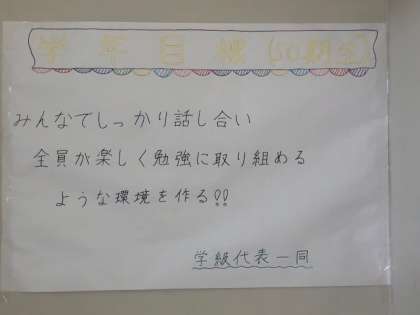 学年目標(60期生)
みんなでしっかり話し合い
全員が楽しく勉強に取り組める
ような環境を作る!!
学級代表一同